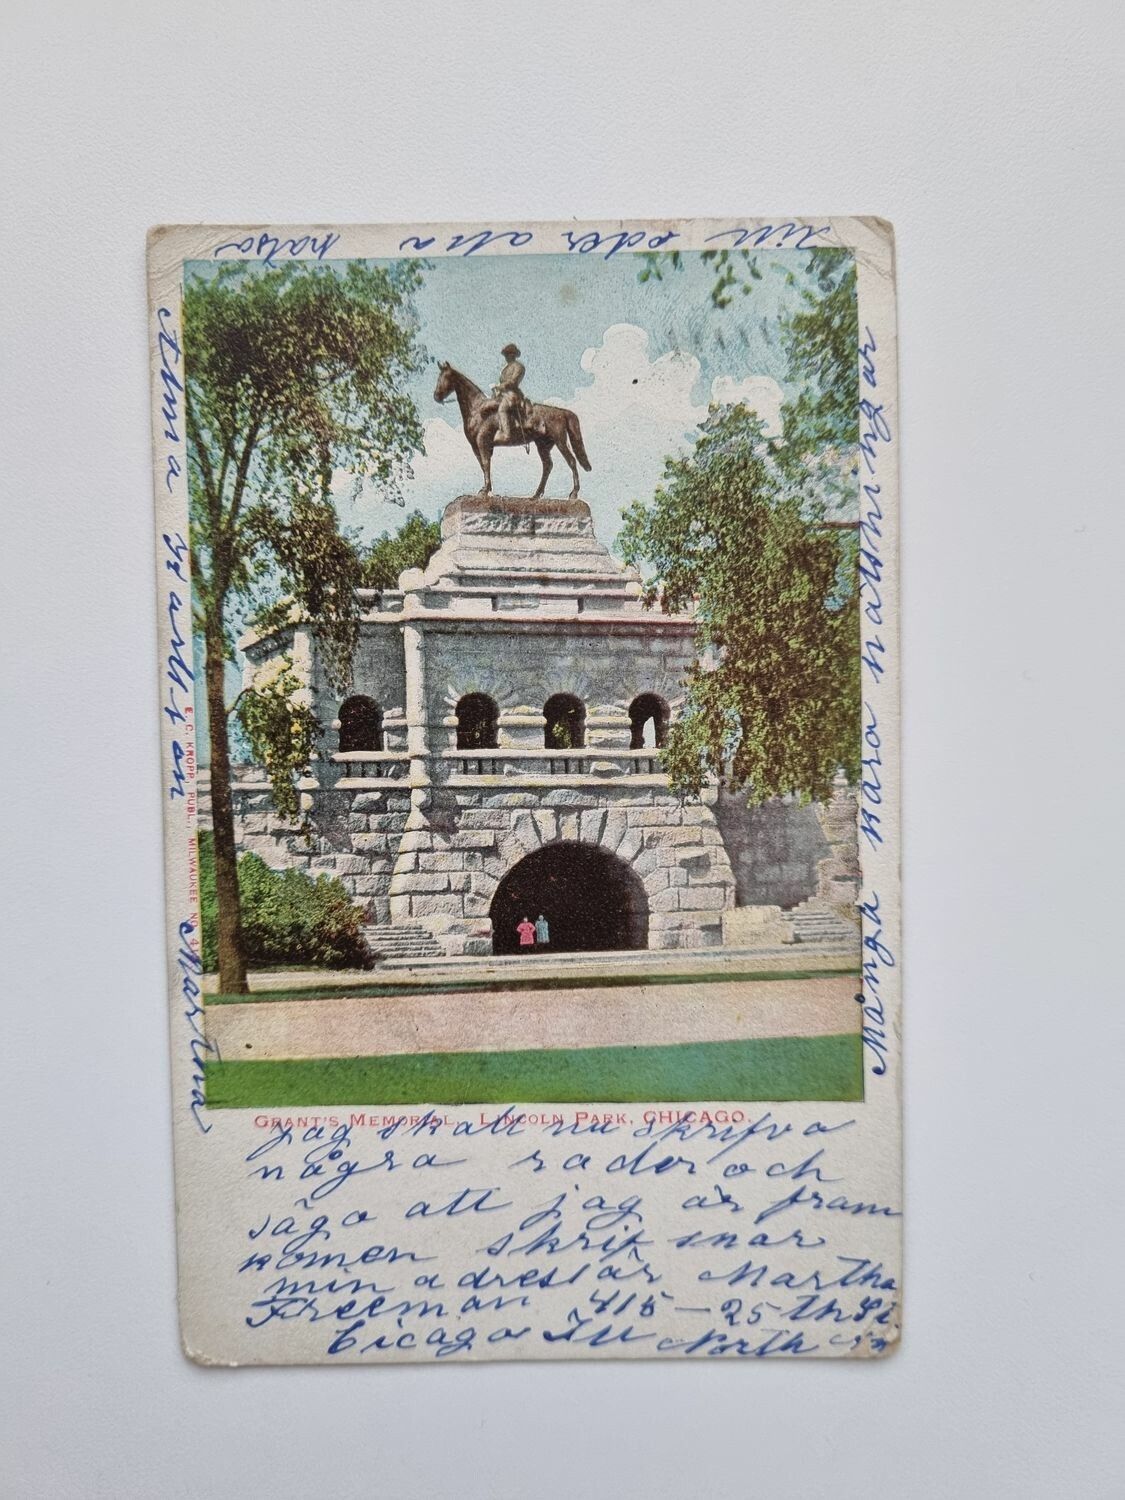 GRANT'S MEMORIAL, LINCOLN PARK, CHICAGO.
E. C. KROPP, PUBL., MILWAUKEE No. 4
jag skall nu skrifva
några rader och
säga att jag är fram
komen skrif snar
min adress är Martha
Freeman 415 - 25 th St.
Cicago Ill North
Många kära hälsningar
till eder alla
hälsa
Alma
Martha